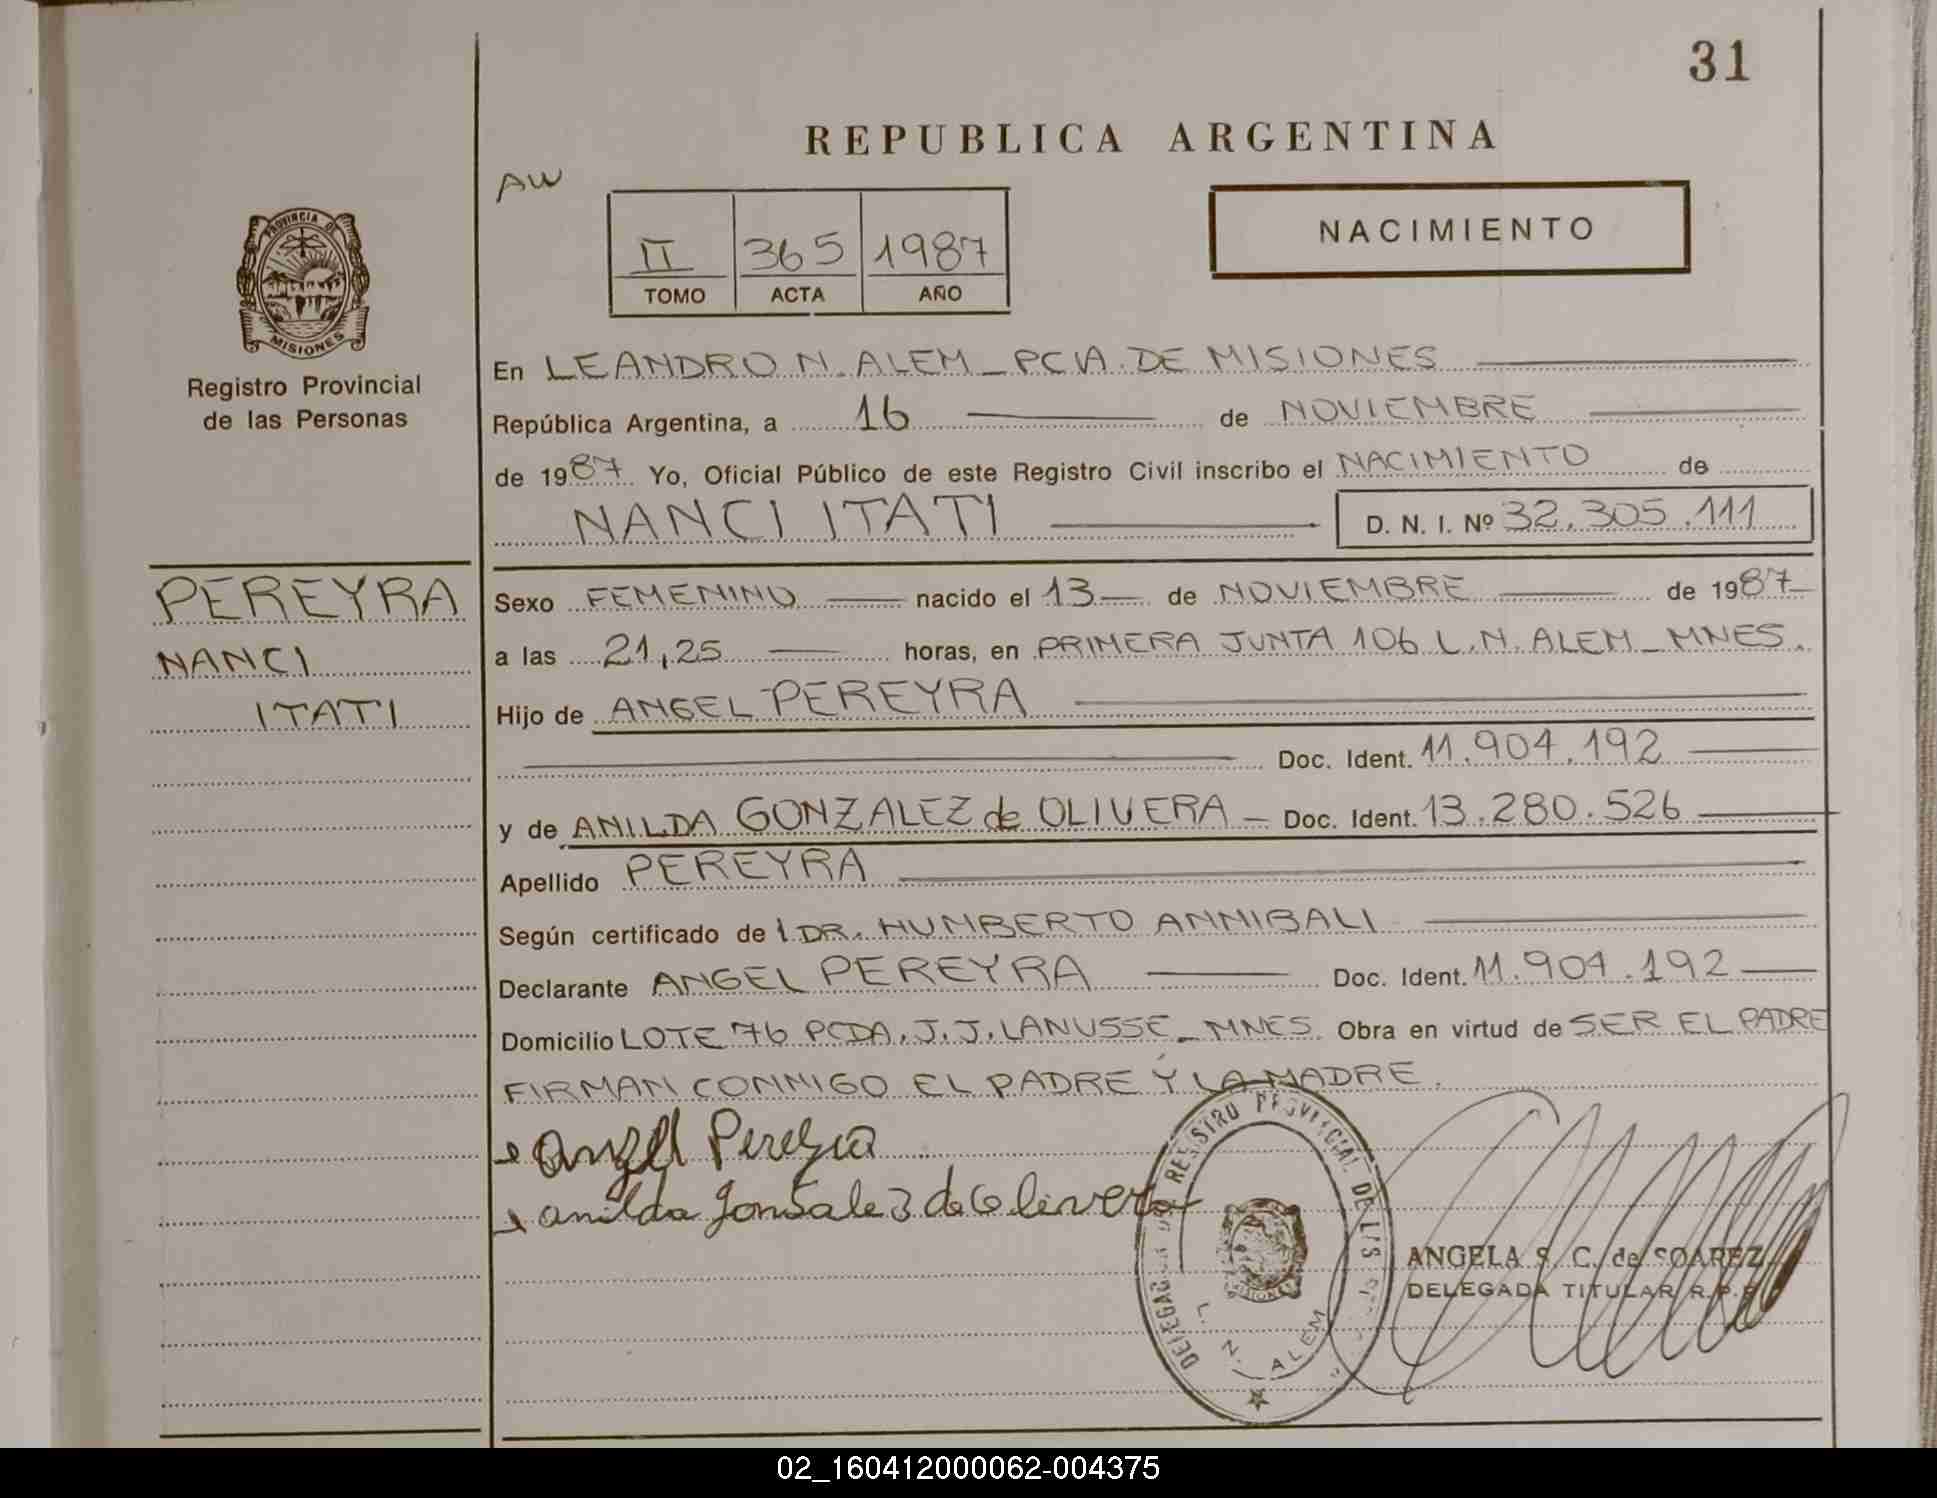 31
REPUBLICA ARGENTINA
AW
II 365 1987
TOMO ACTA AÑO
NACIMIENTO
PROVINCIA DE
MISIONES
Registro Provincial
de las Personas
En LEANDRO N. ALEM - PCIA. DE MISIONES
República Argentina, a 16 de NOVIEMBRE
de 1987. Yo, Oficial Público de este Registro Civil inscribo el NACIMIENTO de
NANCI ITATI D. N. I. Nº 32.305.111
PEREYRA
NANCI
ITATI
Sexo FEMENINO nacido el 13 de NOVIEMBRE de 1987
a las 21,25 horas, en PRIMERA JUNTA 106 L.N. ALEM - MNES.
Hijo de ANGEL PEREYRA
Doc. Ident. 11.904.192
y de ANILDA GONZALEZ de OLIVERA - Doc. Ident. 13.280.526
Apellido PEREYRA
Según certificado de l DR. HUMBERTO ANNIBALI
Declarante ANGEL PEREYRA Doc. Ident. 11.904.192
Domicilio LOTE 76 PCDA. J.J. LANUSSE - MNES. Obra en virtud de SER EL PADRE
FIRMAN CONMIGO EL PADRE Y LA MADRE.
Angel Pereyra
anilda gonsalez de Olivera
REGISTRO PROVINCIAL DE LAS
L. N. ALEM
ANGELA S. C. de SOAREZ
DELEGADA TITULAR R.P.P.
02_160412000062-004375